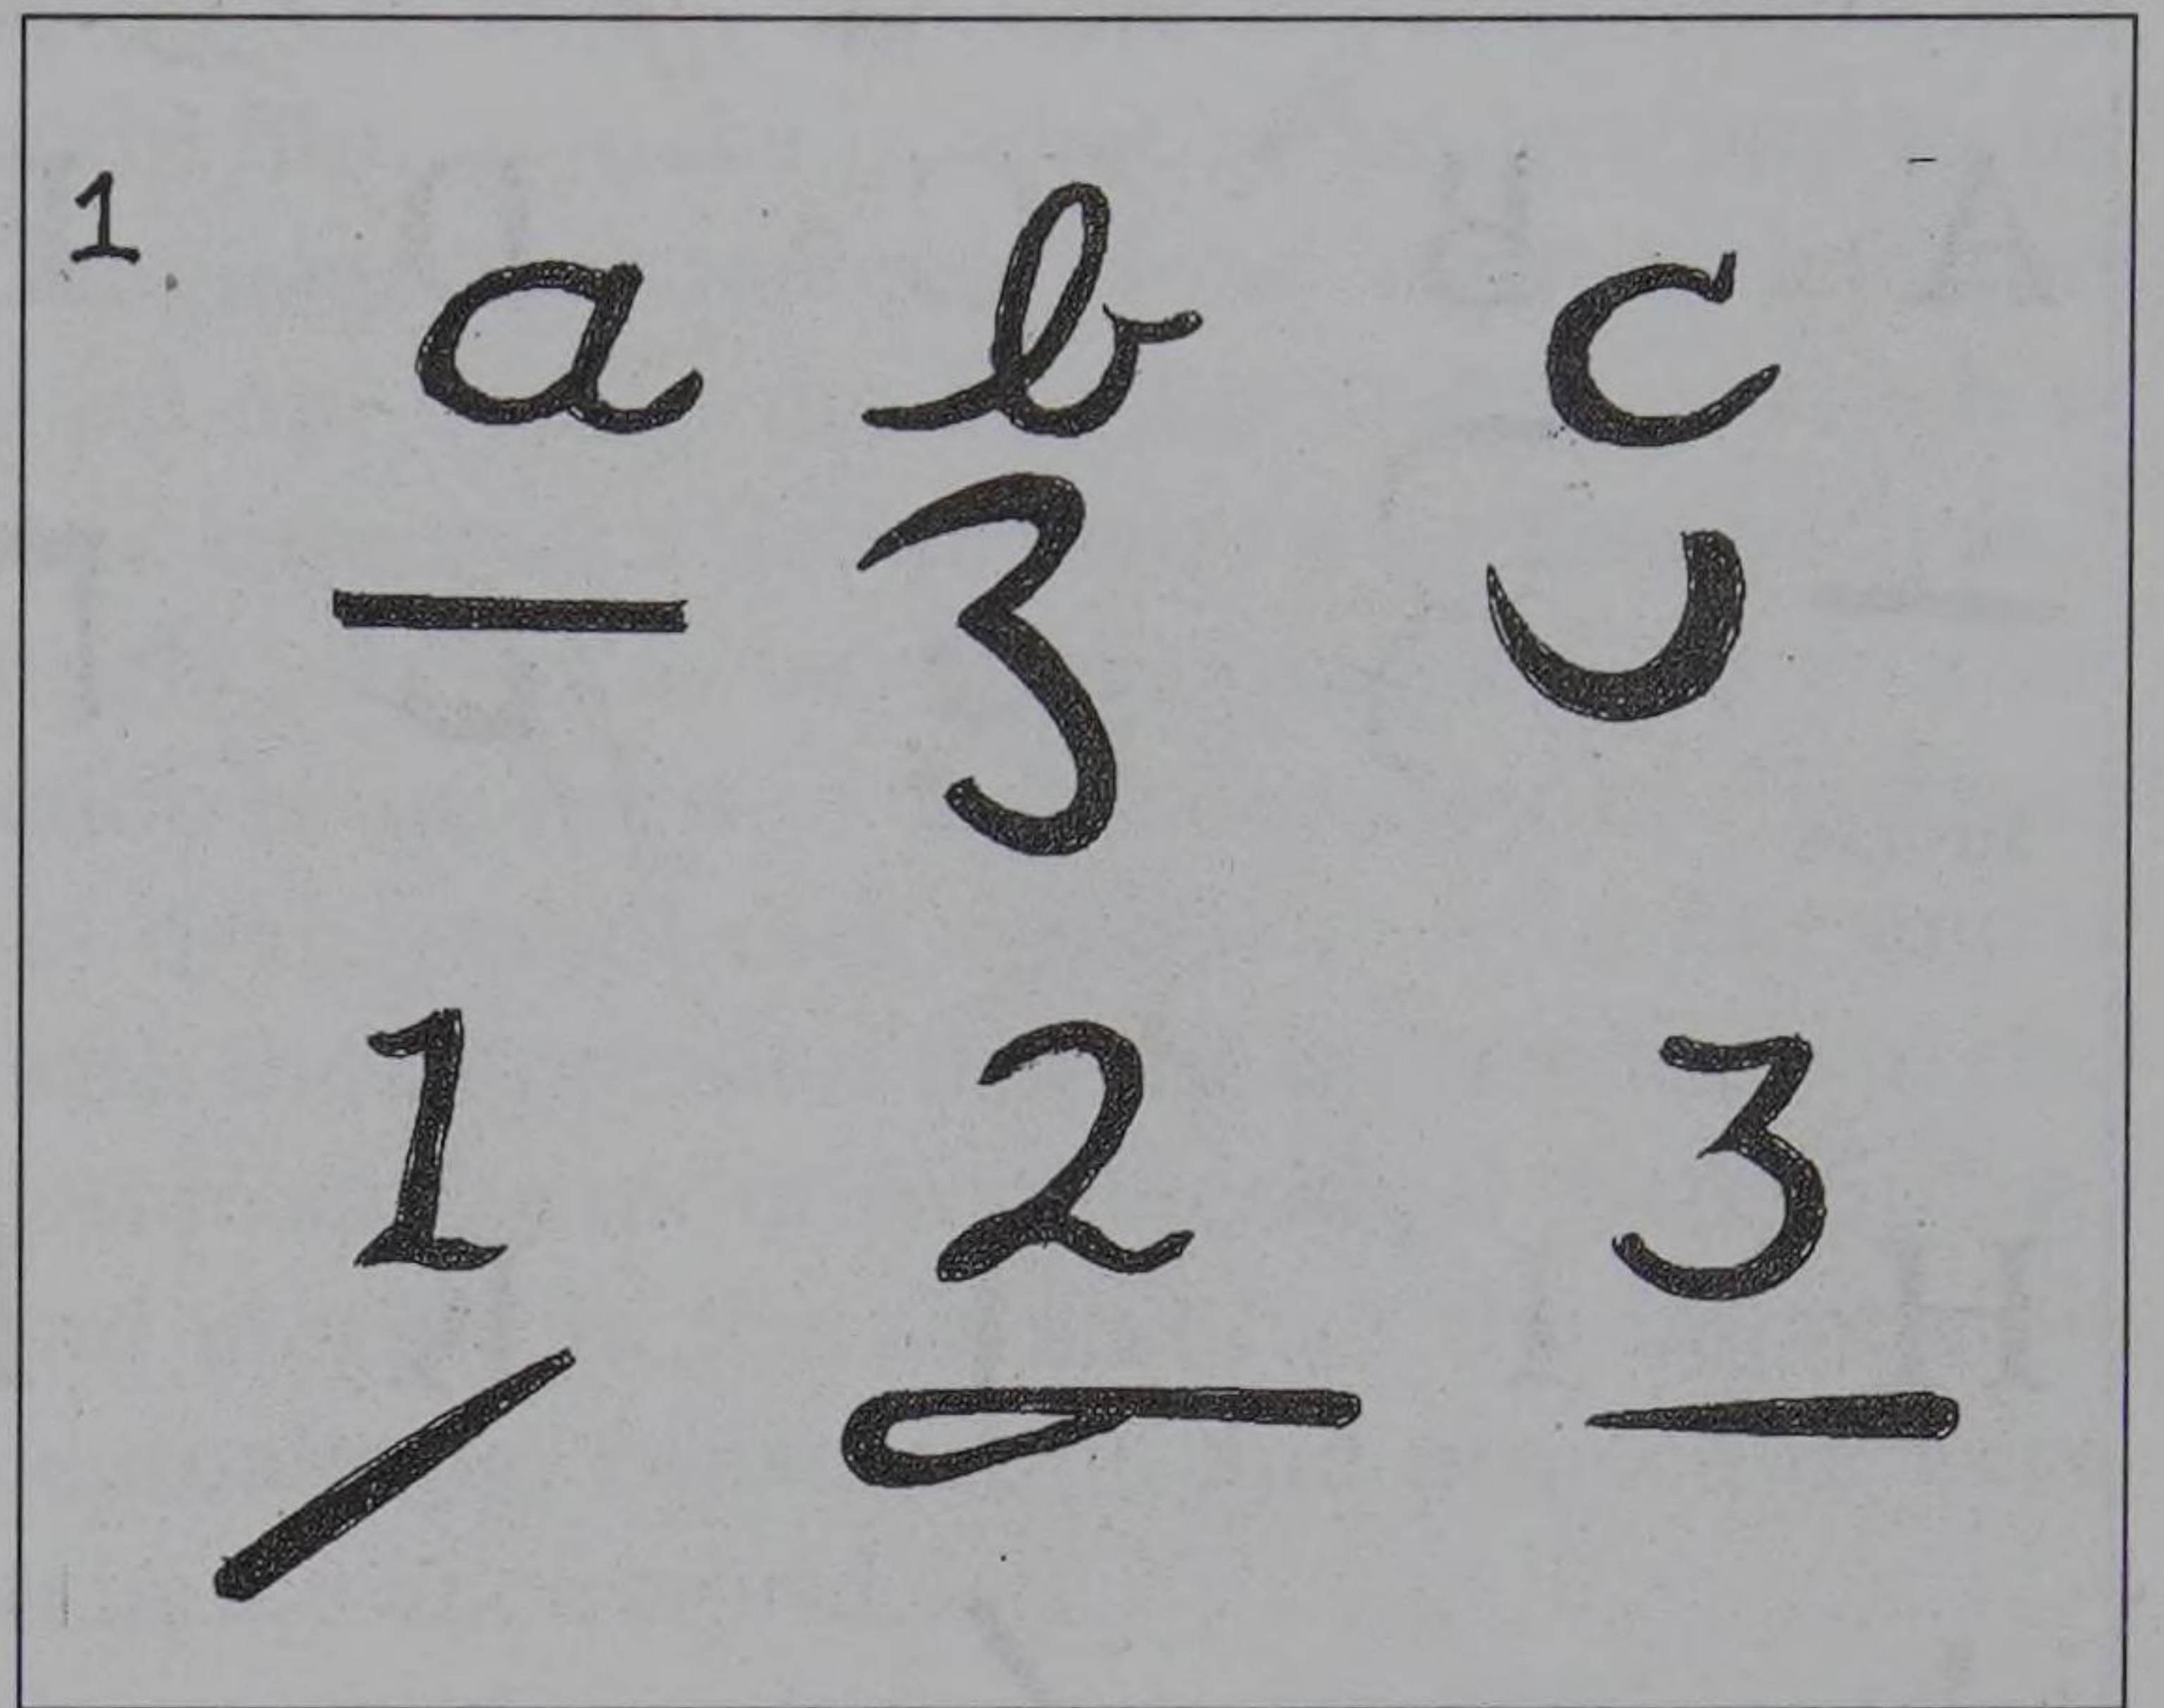 1.
a b c
1 2 3